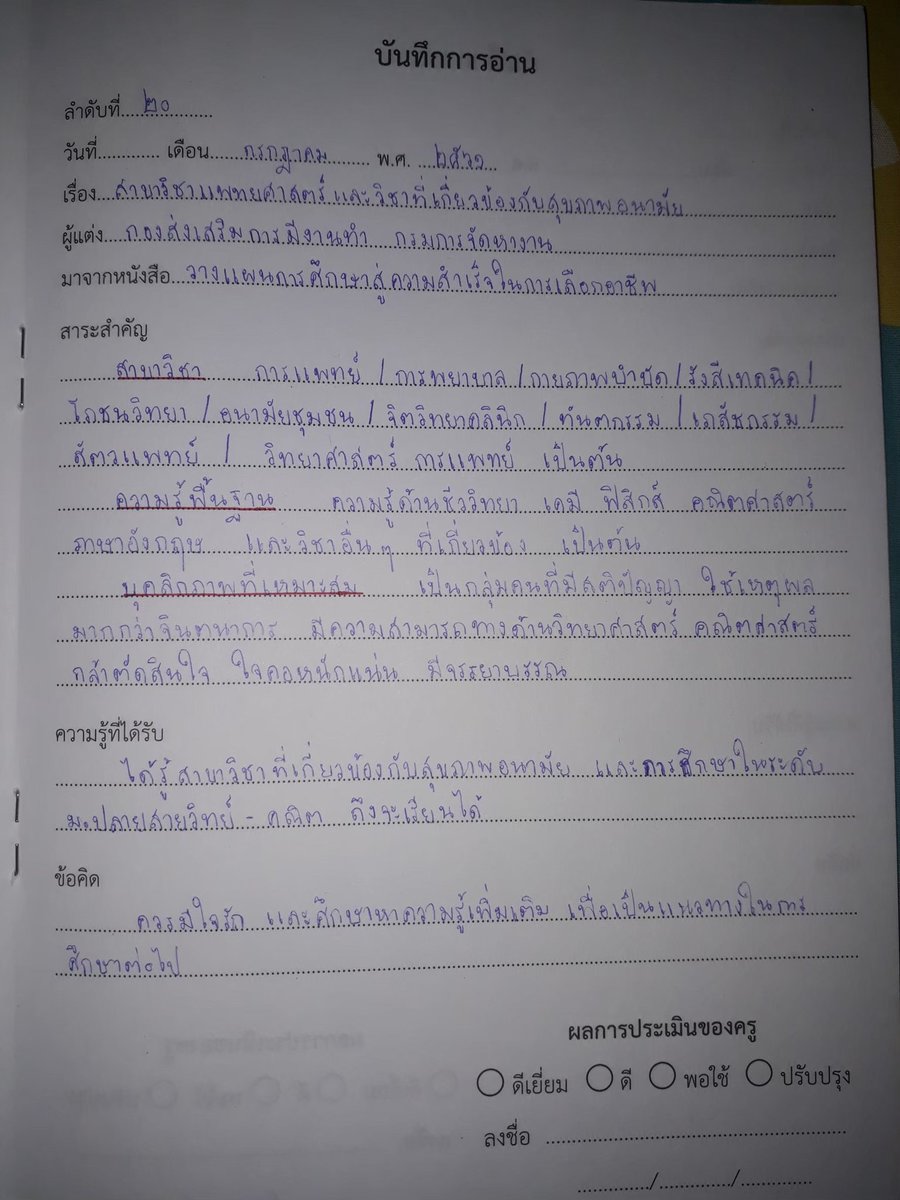 บันทึกการอ่าน
ลำดับที่ ๒๐
วันที่............ เดือน กรกฎาคม พ.ศ. ๒๕๖๑
เรื่อง สาขาวิชาแพทยศาสตร์และวิชาที่เกี่ยวข้องกับสุขภาพอนามัย
ผู้แต่ง กองส่งเสริมการมีงานทำ กรมการจัดหางาน
มาจากหนังสือ วางแผนการศึกษาสู่ความสำเร็จในการเลือกอาชีพ
สาระสำคัญ
สาขาวิชา การแพทย์ / การพยาบาล / กายภาพบำบัด / รังสีเทคนิค /
โภชนวิทยา / อนามัยชุมชน / จิตวิทยาคลินิก / ทันตกรรม / เภสัชกรรม /
สัตวแพทย์ / วิทยาศาสตร์การแพทย์ เป็นต้น
ความรู้พื้นฐาน ความรู้ด้านชีววิทยา เคมี ฟิสิกส์ คณิตศาสตร์
ภาษาอังกฤษ และวิชาอื่นๆ ที่เกี่ยวข้อง เป็นต้น
บุคลิกภาพที่เหมาะสม เป็นกลุ่มคนที่มีสติปัญญา ใช้เหตุผล
มากกว่าจินตนาการ มีความสามารถทางด้านวิทยาศาสตร์ คณิตศาสตร์
กล้าตัดสินใจ ใจคอหนักแน่น มีจรรยาบรรณ
ความรู้ที่ได้รับ
ได้รู้สาขาวิชาที่เกี่ยวข้องกับสุขภาพอนามัย และการศึกษาในระดับ
ม.ปลายสายวิทย์ - คณิต ถึงจะเรียนได้
ข้อคิด
ควรมีใจรัก และศึกษาหาความรู้เพิ่มเติม เพื่อเป็นแนวทางในการ
ศึกษาต่อไป
ผลการประเมินของครู
ดีเยี่ยม ดี พอใช้ ปรับปรุง
ลงชื่อ ........................................
............/............/............